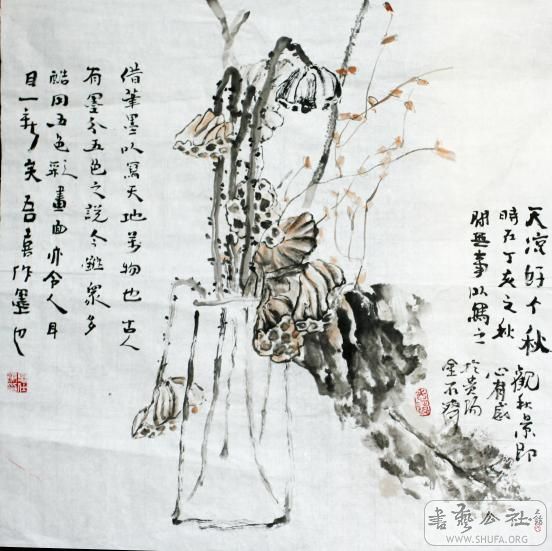 天涼好个秋
觀秋景即
時在丁亥之秋
心有感
閑無事以寫之
於貴陽
金不
借筆墨以寫天地萬物也 古人
有墨分五色之說今雖眾多
酷同五色彩畫面亦令人耳
目一新 吾喜作墨也
書藝公社
WWW.SHUFA.ORG